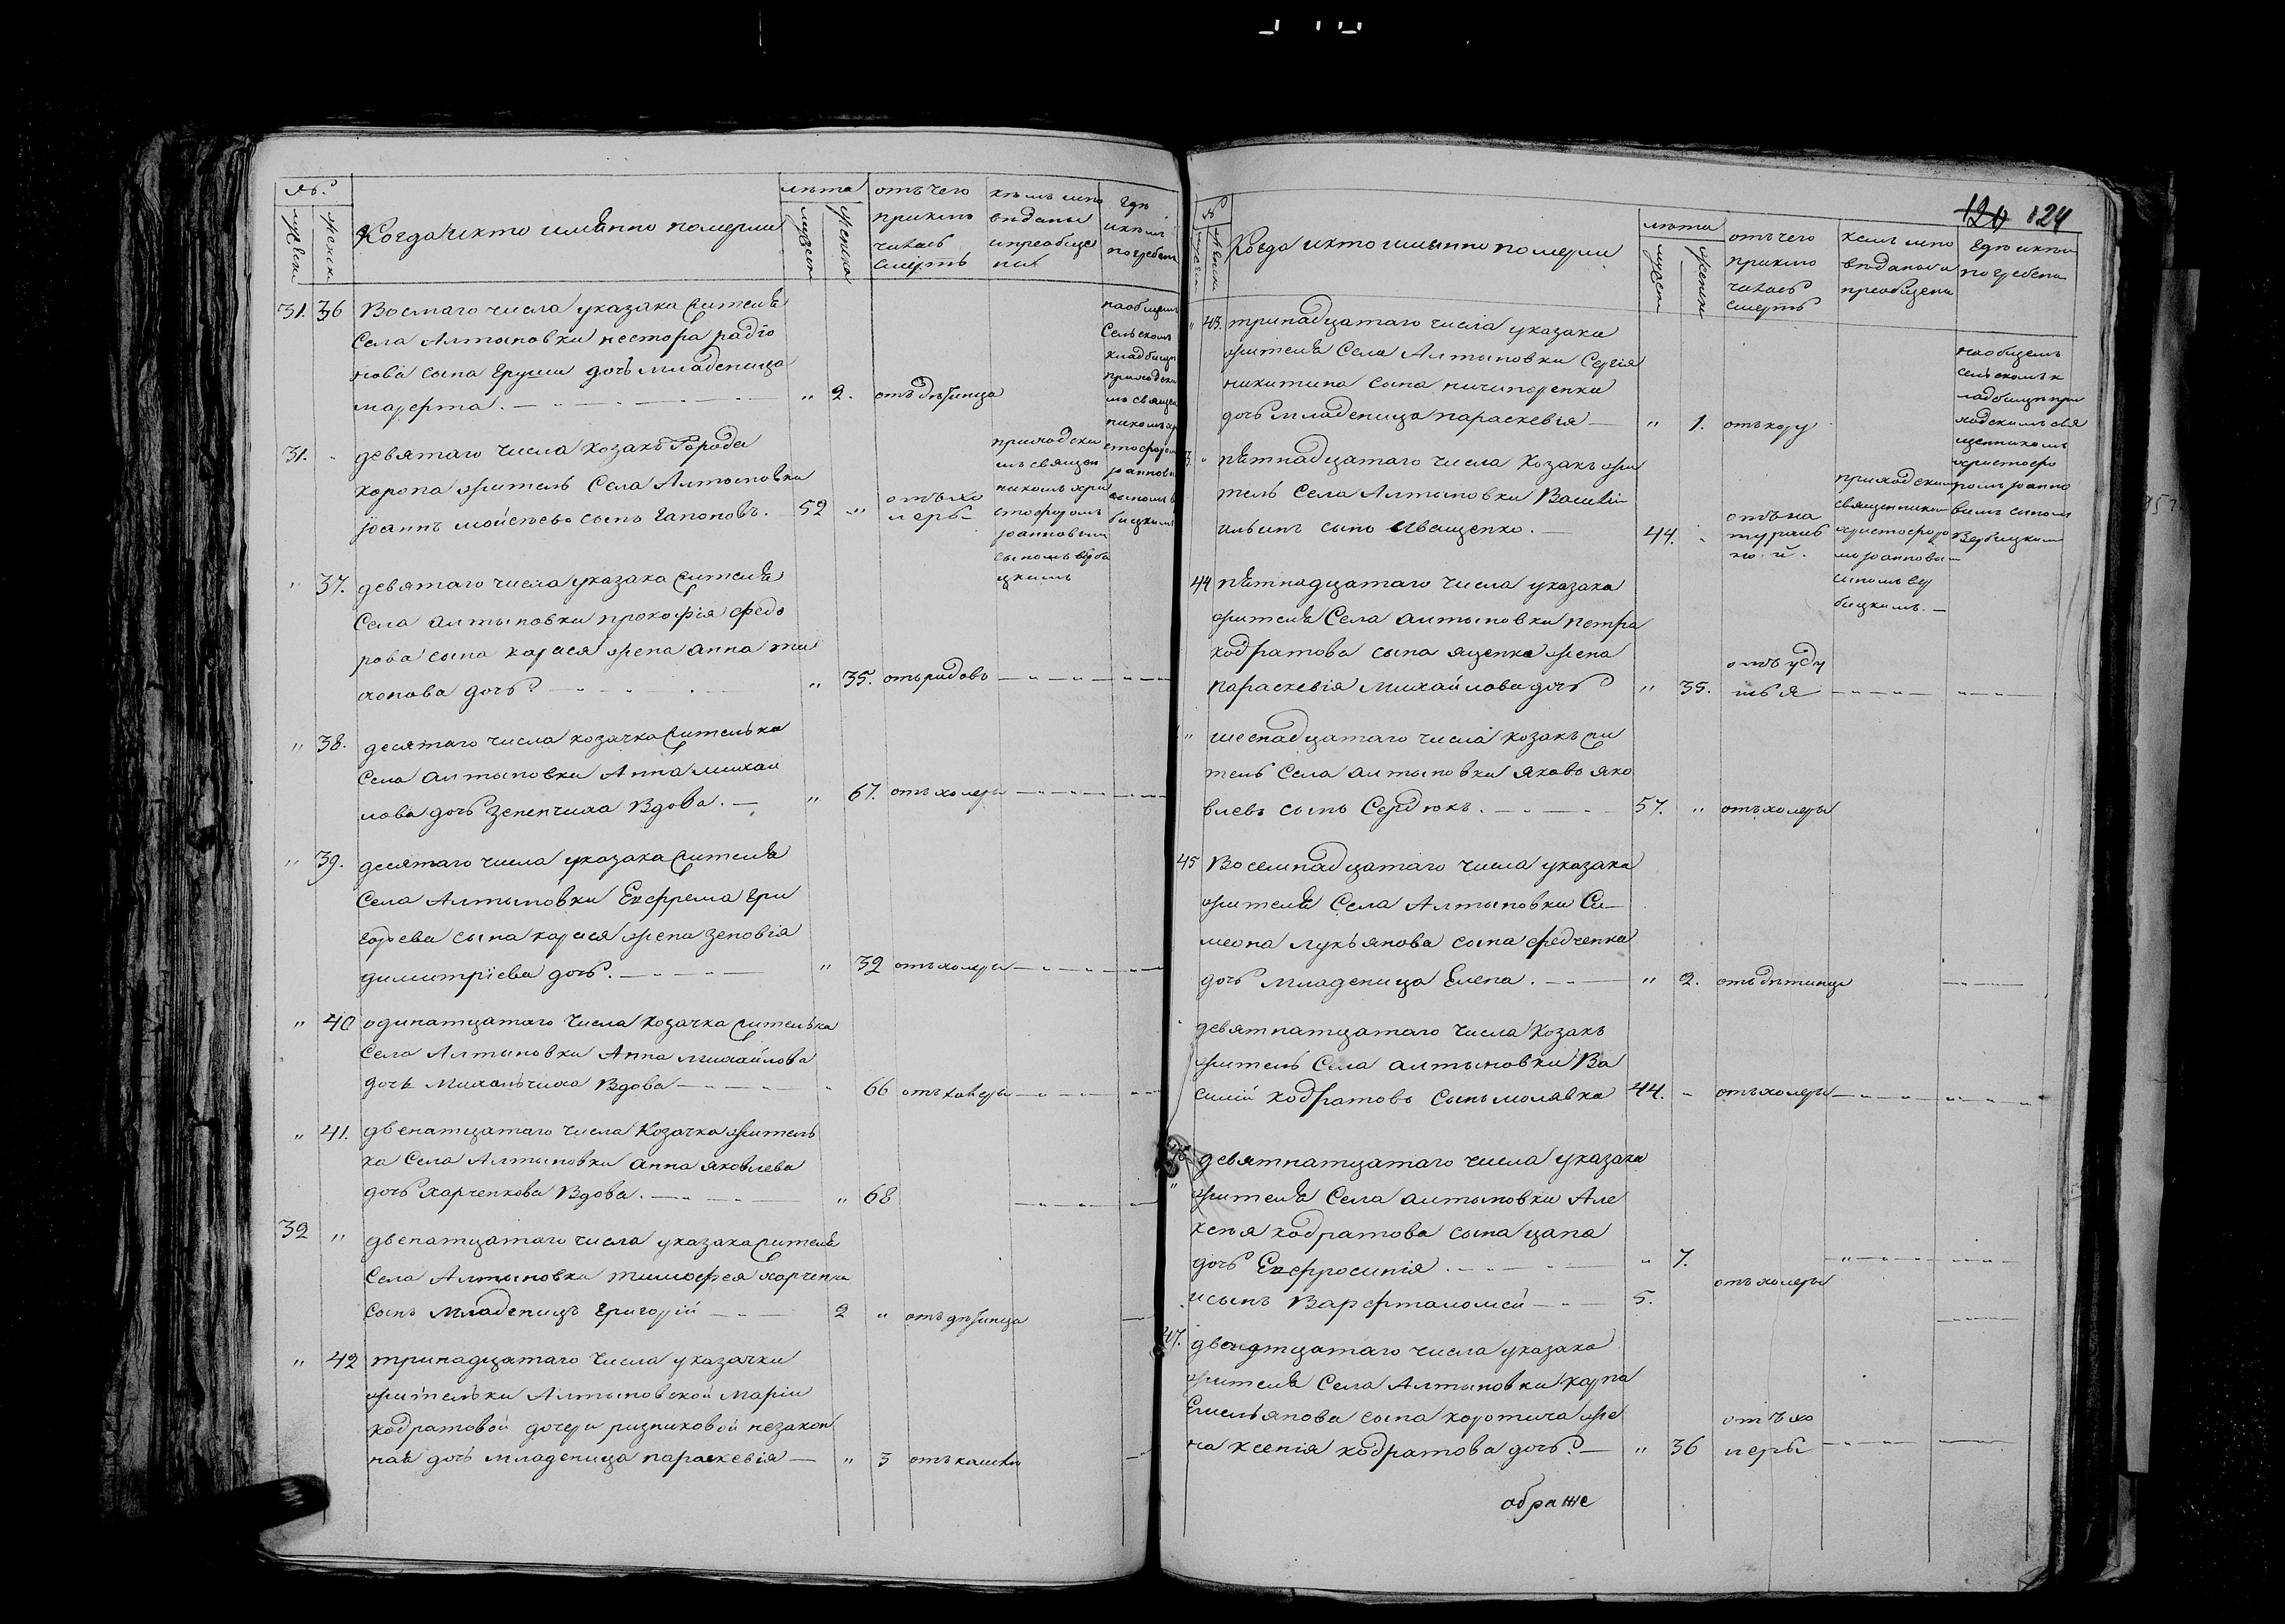 №.
мужеск
женск
Когда и кто именно померли
лѣта
мужеск
женска
отъ чего
приклю
чилась
смерть
кѣмъ испо
вѣданы
и преобще
ны
Гдѣ
и кѣмъ
погребены
31. 36 Восмаго числа указака жителя
Села Алтыновки нестора радіо
нова сына дочь младеница
марфта. " 2. отъ
на общемъ
Сельскомъ
кладбищѣ
приходски
мъ священ
никомъ хри
стофоромъ
іоанновы
31. " девятаго числа козакъ города
коропа житель Села Алтыновки
іоаннъ мойсѣевъ сынъ Гапоновъ. 52 " отъ хо
леры
приходски
мъ священ
никомъ хри
стофоромъ
іоанновым
сыномъ верби
цкимъ
" 37. девятаго числа указака жителя
Села алтыновки прокофія федо
рова сына карася жена анна ти
хонова дочь " 35. отъ родовъ
" 38. десятаго числа козачка жителька
Села алтыновки Анна михаи
лова дочь Зенепчиха Вдова. " 67. отъ холеры
" 39. десятаго числа указака жителя
Села Алтыновки Ефрема Гри
горьева сына карася жена зеновія
димитріева дочь. " 32 отъ холеры
" 40 одинатцатаго числа козачка жителька
Села Алтыновки Анна михайлова
дочь Михальчиха Вдова " 66 отъ холеры
" 41. двенатцатаго числа Козачка житель
ка Села Алтыновки анна яковлева
дочь харченкова Вдова. " 68
32 " двенатцатаго числа указака жителя
Села Алтыновки тимофея харченка
сынъ Младеницъ Григорій 2 "
" 42 тринадцатаго числа указачки
жительки Алтыновской Маріи
кодратовой дочери ризниковой незакон
ная дочь младеница параскевія " 3 отъ кашлю
120 124
№
Когда и кто именно померли
лѣта
мужеск
женски
отъ чего
приклю
чилась
смерть
кемъ испо
вѣданы и
преобщены
Гдѣ и кѣмъ
погребены
" 43. тринадцатаго числа указака
жителя Села Алтыновки Сергія
никитина сына ничипоренки
дочь младеница параскевія " 1. отъ кору
на общемъ
сельскомъ к
ладбищѣ при
ходскимъ свя
щенникомъ
христофо
ромъ іоанно
вимъ сыном
Вербицким
" пѣтнадцатаго числа козакъ жи
тель Села Алтыновки Василій
ильинъ сынъ Иващенко. 44. " отъ на
туралъ
но й.
приходским
священником
христофоро
мъ іоанновы
сыномъ вер
бицкимъ.
44 пѣтнадцатаго числа указака
жителя Села алтыновки петра
кодратова сына яценка жена
параскевія Михайлова дочь " 35. отъ уду
шья
" шеснадцатаго числа козакъ жи
тель Села алтыновки яковъ яко
влевъ сынъ Сердюкъ. 57. " отъ холеры
45 Восемнадцатаго числа указака
жителя Села Алтыновки Си
меона лукьянова сына федченка
дочь младеница Елена. " 2. отъ дѣтинца
девятнатцатаго числа Козакъ
житель Села алтыновки Ва
силій кодратовъ сынъ молявка 44. " отъ холеры
девятнатцатаго числа указака
жителя Села алтыновки Але
ксѣя кодратова сына цапа
дочь Ефросинія " 7.
отъ холеры
и сынъ Варфтоломей 5.
47. двадцатаго числа указака
жителя Села Алтыновки карпа
Емельянова сына коротича же
на ксенія кодратова дочь. " 36 отъ хо
леры